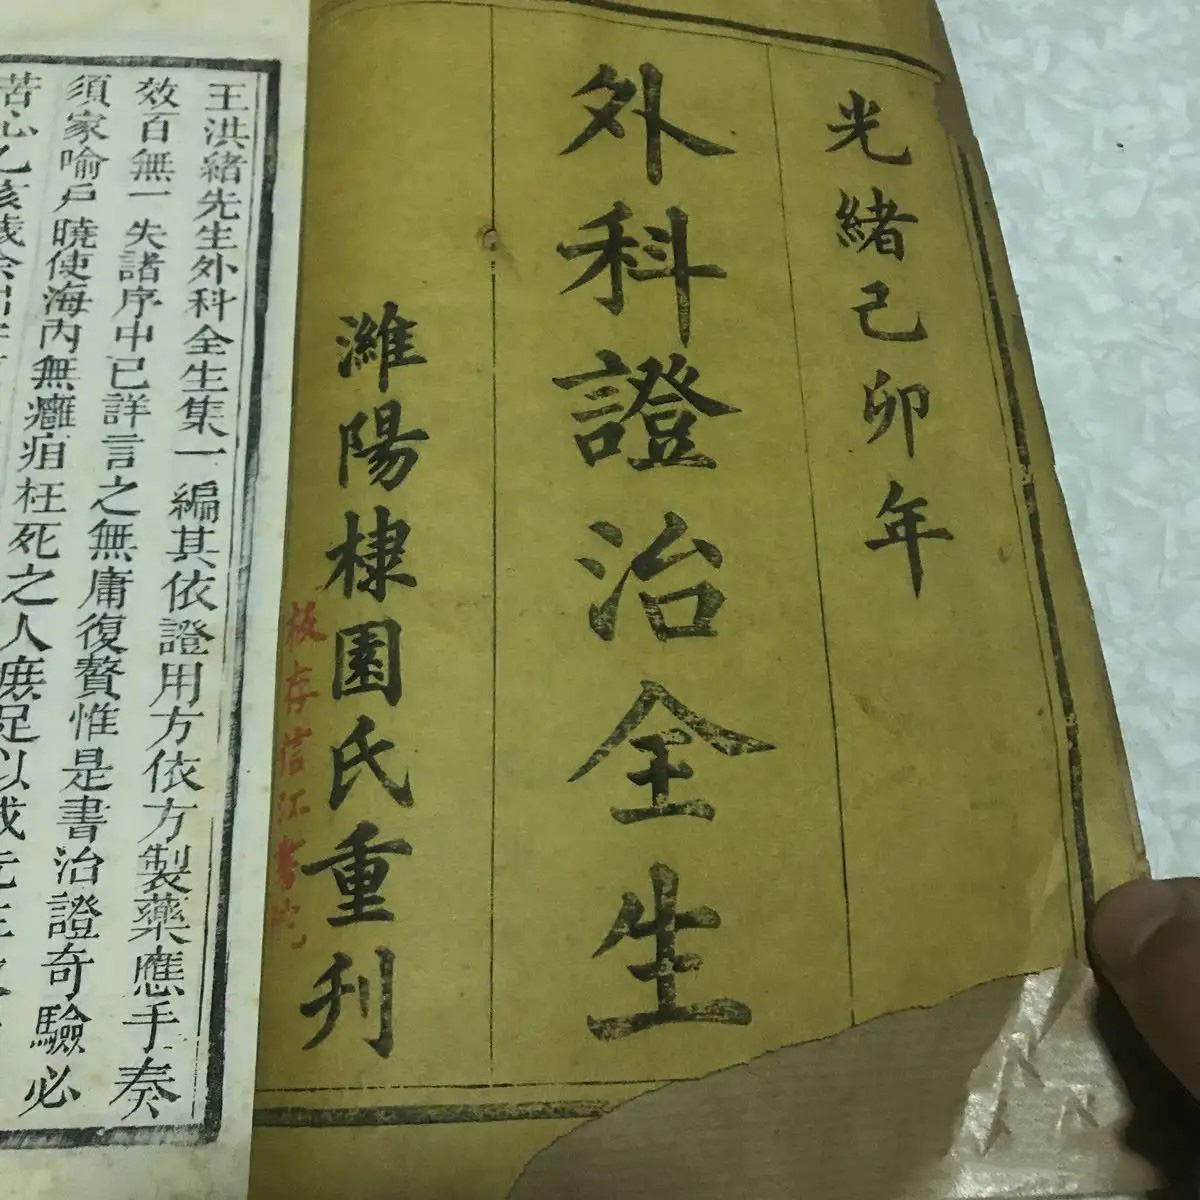 光緒己卯年
外科證治全生
濰陽棣園氏重刋
板存信江書院
王洪緒先生外科全生集一編其依證用方依方製藥應手奏
效百無一失諸序中已詳言之無庸復贅惟是書治證奇驗必
須家喻戶曉使海內無癰疽枉死之人庶足以
苦心